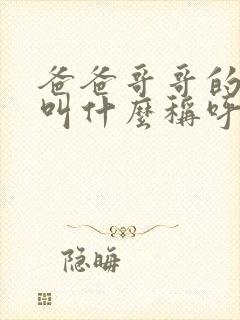 爸爸哥哥的
叫什麼稱呼
隐晦